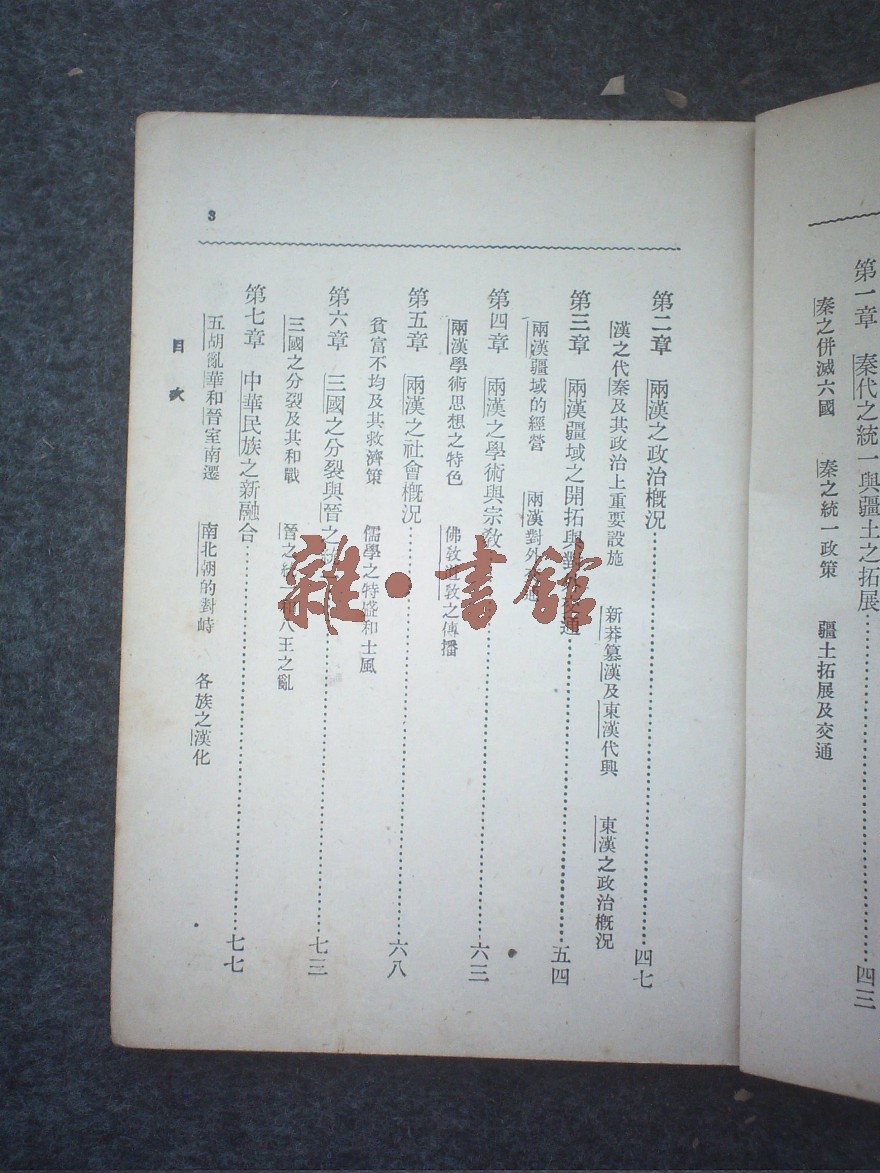 第一章　秦代之統一與疆土之拓展……四三
秦之併滅六國　秦之統一政策　疆土拓展及交通
3
第二章　兩漢之政治概況……四七
漢之代秦及其政治上重要設施　新莽篡漢及東漢代興　東漢之政治概況
第三章　兩漢疆域之開拓與對外交通……五四
兩漢疆域的經營　兩漢對外交通
第四章　兩漢之學術與宗教……六三
兩漢學術思想之特色　佛教道教之傳播
第五章　兩漢之社會概況……六八
貧富不均及其救濟策　儒學之特盛和士風
第六章　三國之分裂與晉之統一……七三
三國之分裂及其和戰　晉之統一和八王之亂
第七章　中華民族之新融合……七七
五胡亂華和晉室南遷　南北朝的對峙　各族之漢化
目次
雜·書館